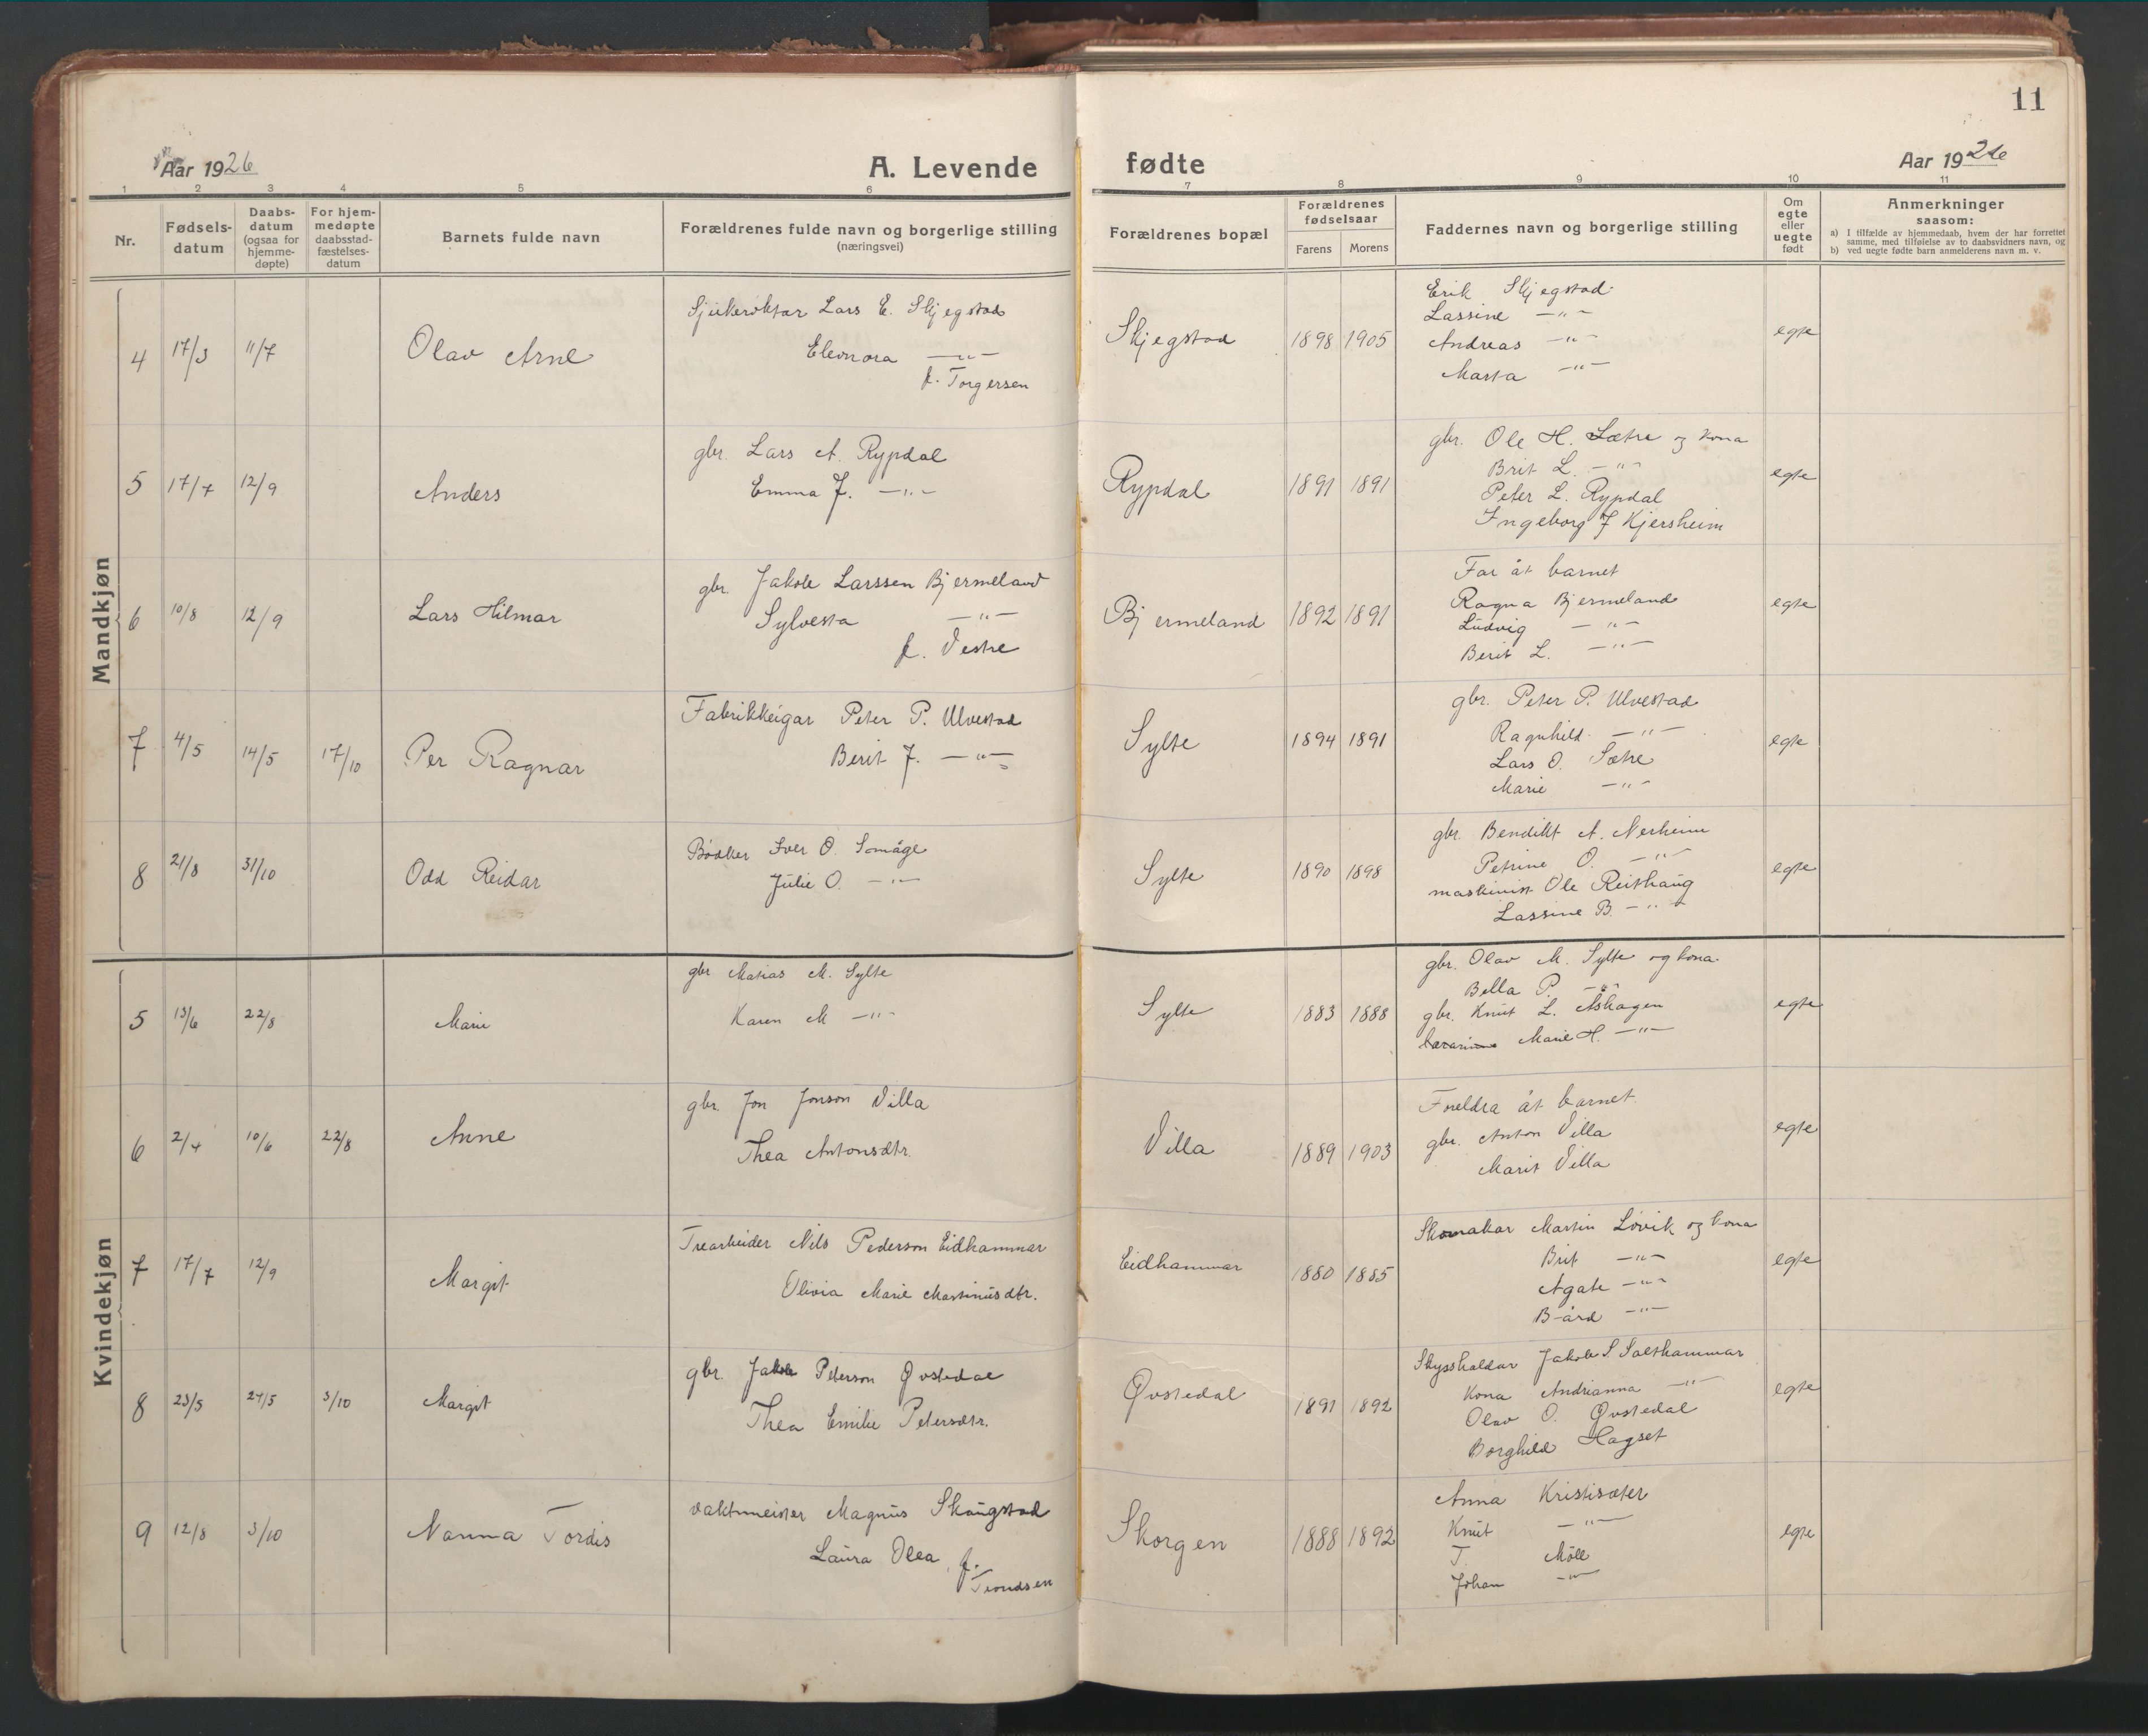 11
Aar 1926
A. Levende fødte
Aar 1926
1 2 3 4 5 6 7 8 9 10 11
Nr.
Fødsels-
datum
Daabs-
datum
(ogsaa for
hjemme-
døpte)
For hjem-
medøpte
daabsstad-
fæstelses-
datum
Barnets fulde navn
Forældrenes fulde navn og borgerlige stilling
(næringsvei)
Forældrenes bopæl
Forældrenes
fødselsaar
Farens Morens
Faddernes navn og borgerlige stilling
Om
egte
eller
uegte
født
Anmerkninger
saasom:
a) I tilfælde av hjemmedaab, hvem der har forrettet
samme, med tilføielse av to daabsvidners navn, og
b) ved uegte fødte barn anmelderens navn m. v.
Mandkjøn
4 17/3 11/7 Olav Arne
Sjukerøktar Lars E. Skjegstad
Eleonora —"—
f. Torgersen
Skjegstad 1898 1905
Erik Skjegstad
Lassine —"—
Andreas —"—
Marta —"—
egte
5 17/7 12/9 Anders
gbr. Lars A. Rypdal
Emma J. —"—
Rypdal 1891 1891
gbr. Ole H. Sætre og kona
Brit L. —"—
Peter L. Rypdal
Ingeborg J Kjersheim
egte
6 10/8 12/9 Lars Hilmar
gbr. Jakob Larssen Bjermeland
Sylvesta —"—
f. Vestre
Bjermeland 1892 1891
Far åt barnet
Ragna Bjermeland
Ludvig —"—
Berit L. —"—
egte
7 4/5 14/5 17/10 Per Ragnar
Fabrikkeigar Peter P. Ulvestad
Berit J. —"—
Sylte 1894 1891
gbr. Peter P. Ulvestad
Ragnhild —"—
Lars O. Sætre
Marie —"—
egte
8 21/8 31/10 Odd Reidar
Bødker Iver O. Somåge
Julie O. —"—
Sylte 1890 1898
gbr. Bendikt A. Nerheim
Petrine O. —"—
maskinist Ole Reithaug
Lassine B. —"—
egte
Kvindekjøn
5 13/6 22/8 Marie
gbr Matias M. Sylte
Karen M —"—
Sylte 1883 1888
gbr. Olav M. Sylte og kona
Bella P. —"—
gbr. Knut L. Åshagen
Marie H. —"—
egte
6 2/4 10/6 22/8 Anne
gbr. Jon Jonson Villa
Thea Antonsdtr.
Villa 1889 1903
Foreldra åt barnet
gbr. Anton Villa
Marit Villa
egte
7 17/7 12/9 Margit
Trearbeider Nils Pederson Eidhammar
Olivia Marie Martinusdtr.
Eidhammar 1880 1885
Skomakar Martin Løvik og kona
Brit —"—
Agate —"—
Bård —"—
egte
8 23/5 24/5 3/10 Margit
gbr. Jakob Peterson Øvstedal
Thea Emilie Petersdtr.
Øvstedal 1891 1892
Skysshaldar Jakob S Salthammar
Kona Andrianna —"—
Olav O. Øvstedal
Borghild Hagset
egte
9 12/8 3/10 Nanna Tordis
vaktmeister Magnus Skaugstad
Laura Olea f.
Trondsen
Skorgen 1888 1892
Anna Kristisæter
Knut —"—
T. Moll
Johan —"—
egte